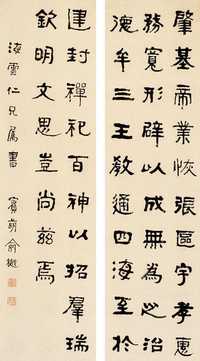 肇基帝業恢張區宇孝惠
務寬形辟以成無為之治
德牟三王教通四海至於
建封禪祀百神以招羣瑞
欽明文思豈尚茲焉
海雲仁兄屬書 賓萌俞樾